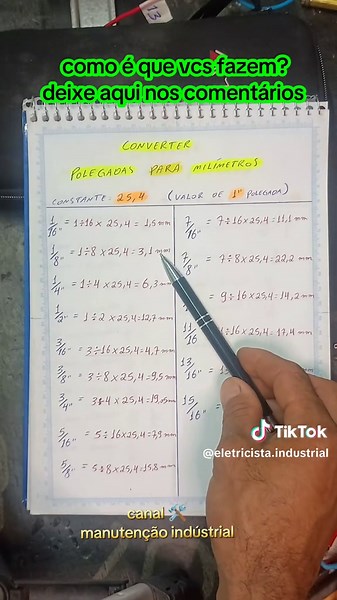 13
como é que vcs fazem?
deixe aqui nos comentários
CONVERTER
POLEGADAS PARA MILÍMETROS
CONSTANTE: 25,4 (VALOR DE 1" POLEGADA)
1/16" = 1÷16 x 25,4 = 1,5 mm
1/8" = 1÷8 x 25,4 = 3,1 mm
1/4" = 1÷4 x 25,4 = 6,3 mm
1/2" = 1÷2 x 25,4 = 12,7 mm
3/16" = 3÷16 x 25,4 = 4,7 mm
3/8" = 3÷8 x 25,4 = 9,5 mm
3/4" = 3÷4 x 25,4 = mm
5/16" = 5÷16 x 25,4 = 7,9 mm
5/8" = 5÷8 x 25,4 = 15,8 mm
7/16" = 7÷16 x 25,4 = 11,1 mm
7/8" = 7÷8 x 25,4 = 22,2 mm
= 9÷16 x 25,4 = 14,2 mm
11/16 ÷16 x 25,4 = 17,4 mm
13/16" =
15/16" =
TikTok
@eletricista.industrial
canal 🛠️
manutenção indústrial